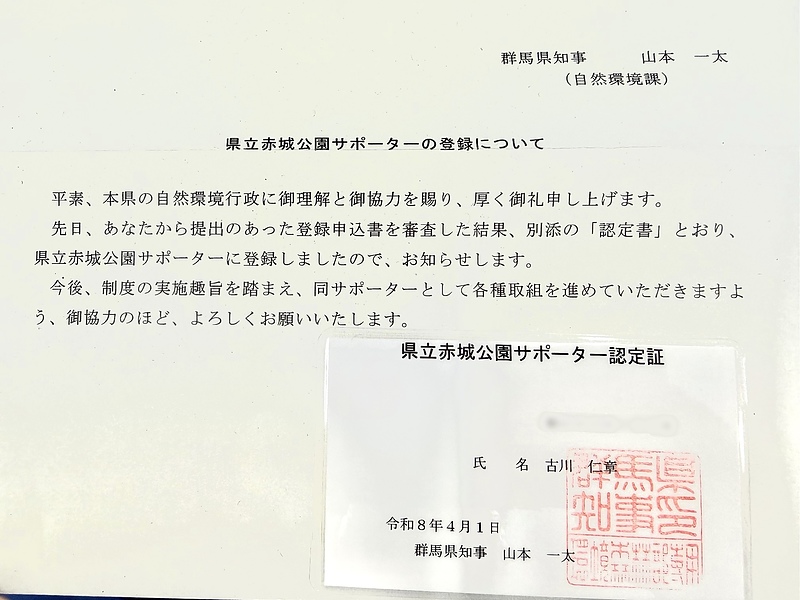 群馬県知事　　山本　一太
（自然環境課）
県立赤城公園サポーターの登録について
平素、本県の自然環境行政に御理解と御協力を賜り、厚く御礼申し上げます。
先日、あなたから提出のあった登録申込書を審査した結果、別添の「認定書」とおり、
県立赤城公園サポーターに登録しましたので、お知らせします。
今後、制度の実施趣旨を踏まえ、同サポーターとして各種取組を進めていただきますよ
う、御協力のほど、よろしくお願いいたします。
県立赤城公園サポーター認定証
氏　名　古川　仁章
令和８年４月１日
群馬県知事　山本　一太